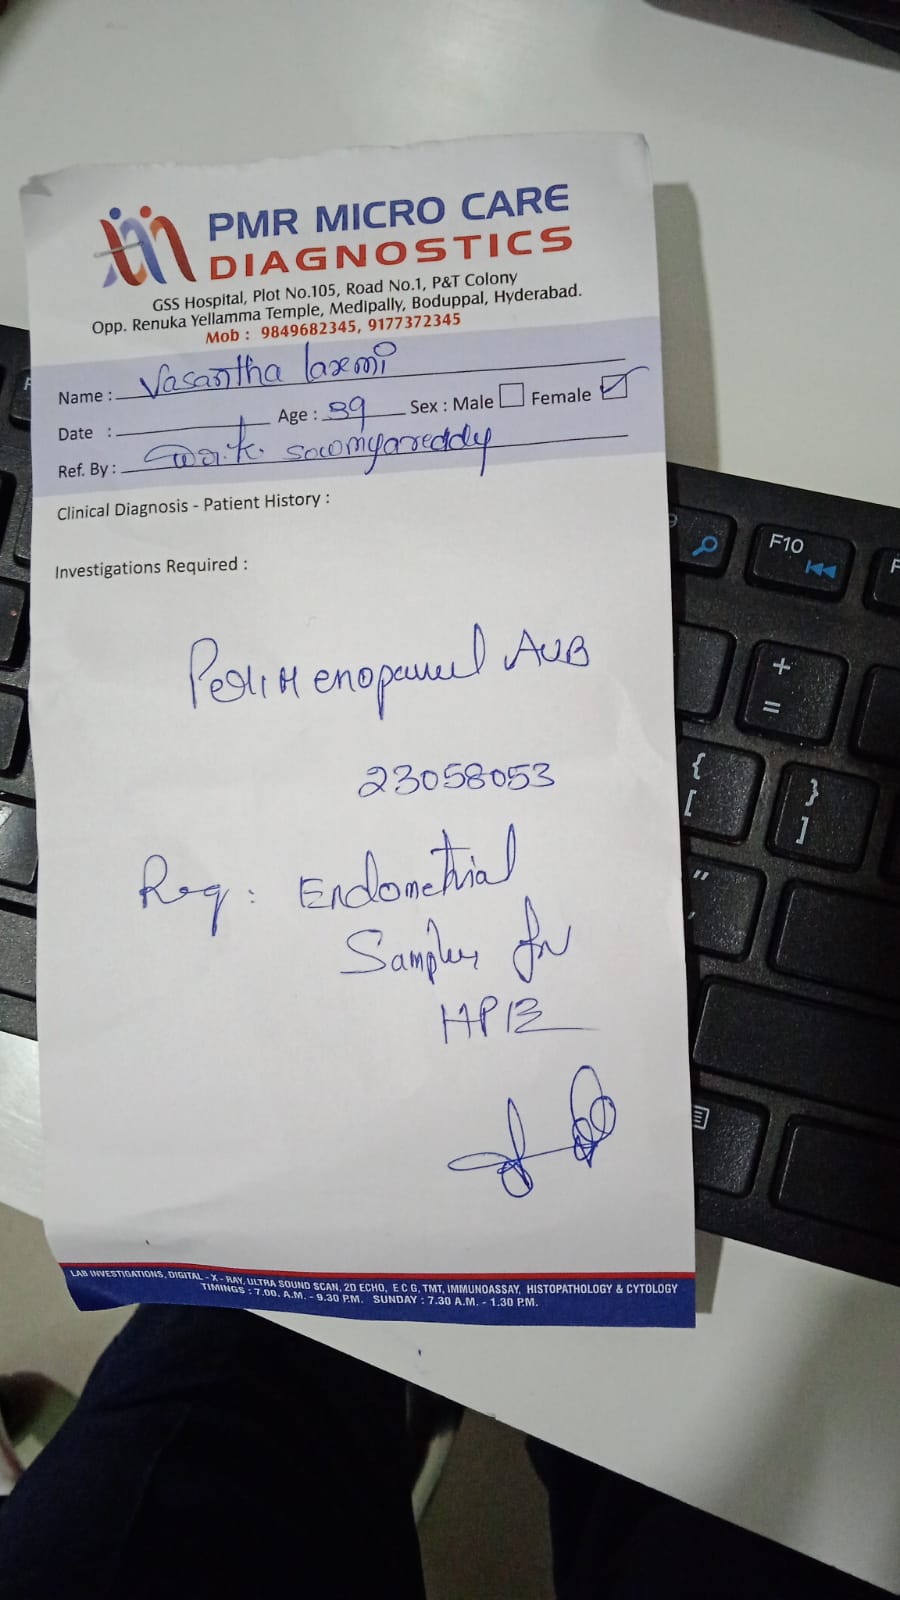 PMR MICRO CARE
DIAGNOSTICS
GSS Hospital, Plot No.105, Road No.1, P&T Colony
Opp. Renuka Yellamma Temple, Medipally, Boduppal, Hyderabad.
Mob : 9849682345, 9177372345
Name : Vasantha laxmi
Date : Age : 39 Sex : Male Female
Ref. By : K. sowmyareddy
Clinical Diagnosis - Patient History :
Investigations Required :
Perimenopausal AUB
23058053
Req: Endometrial
Samples for
HPE
LAB INVESTIGATIONS, DIGITAL - X - RAY, ULTRA SOUND SCAN, 2D ECHO, E C G, TMT, IMMUNOASSAY, HISTOPATHOLOGY & CYTOLOGY
TIMINGS : 7.00. A.M. - 9.30 P.M. SUNDAY : 7.30 A.M. - 1.30 P.M.
F10
+
=
{
[
}
]
"